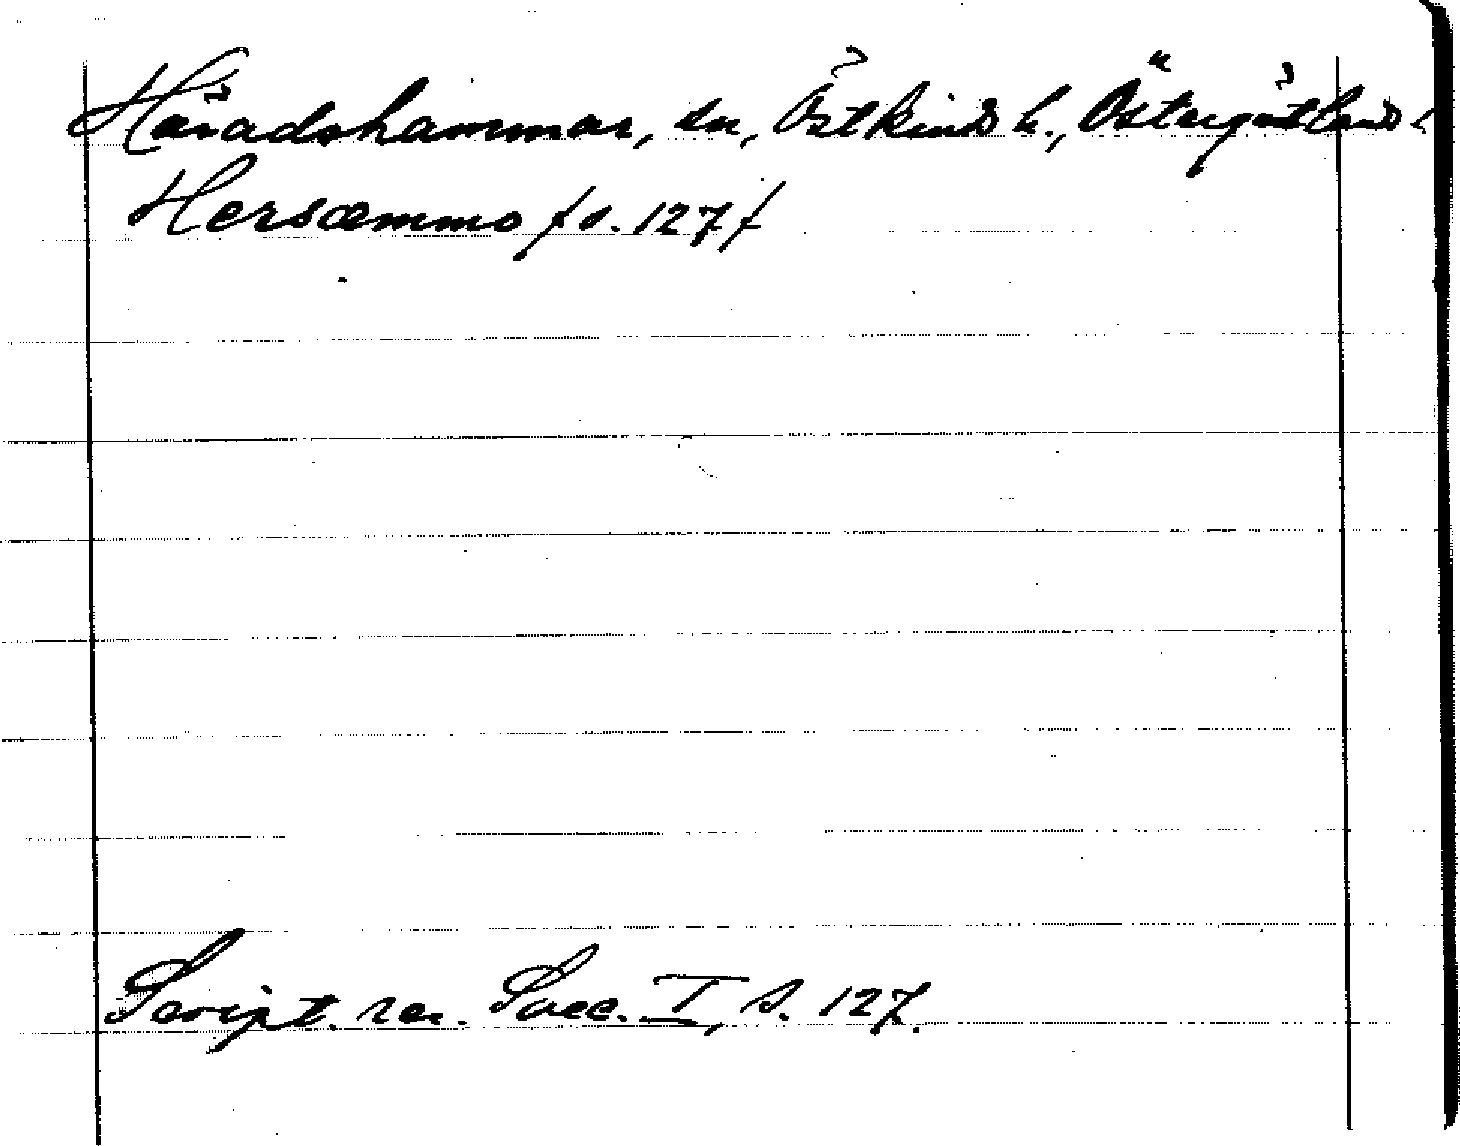 Häradshammar, sn, Östkinds h., Östergötlands l
Hersæmmo f s. 127 f
Script. rer. Svec. I, s. 127.